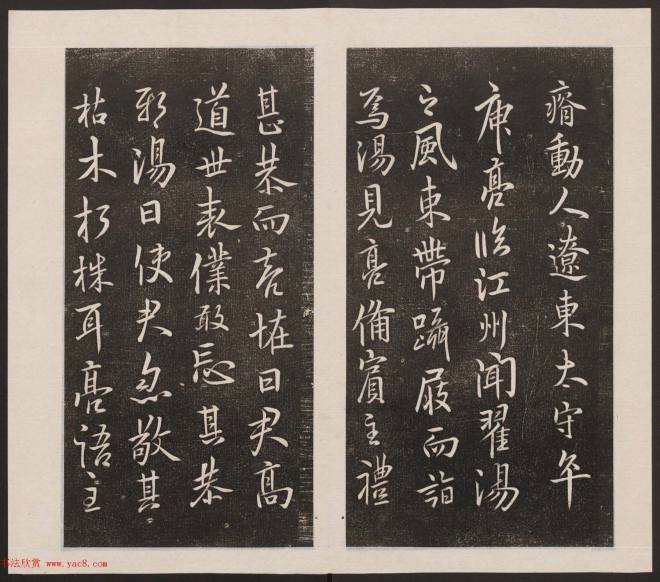 瘠動人遼東太守卒
庾亮臨江州聞翟湯
之風束帶躡屐而詣
焉湯見亮備賓主禮
甚恭而曰君高
道世表僕敢忘其恭
邪湯曰使君忽敬其
枯木朽株耳亮語主
书法欣赏 www.yac8.com